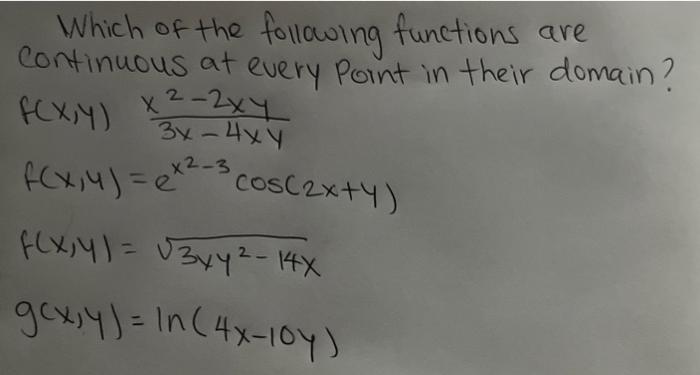 Which of the following functions are
continuous at every point in their domain?
f(x,y) x²-2xy
3x-4xy
f(x,y)=e^x²-3 cos(2x+y)
f(x,y)= √3xy²-14x
g(x,y)=ln(4x-10y)